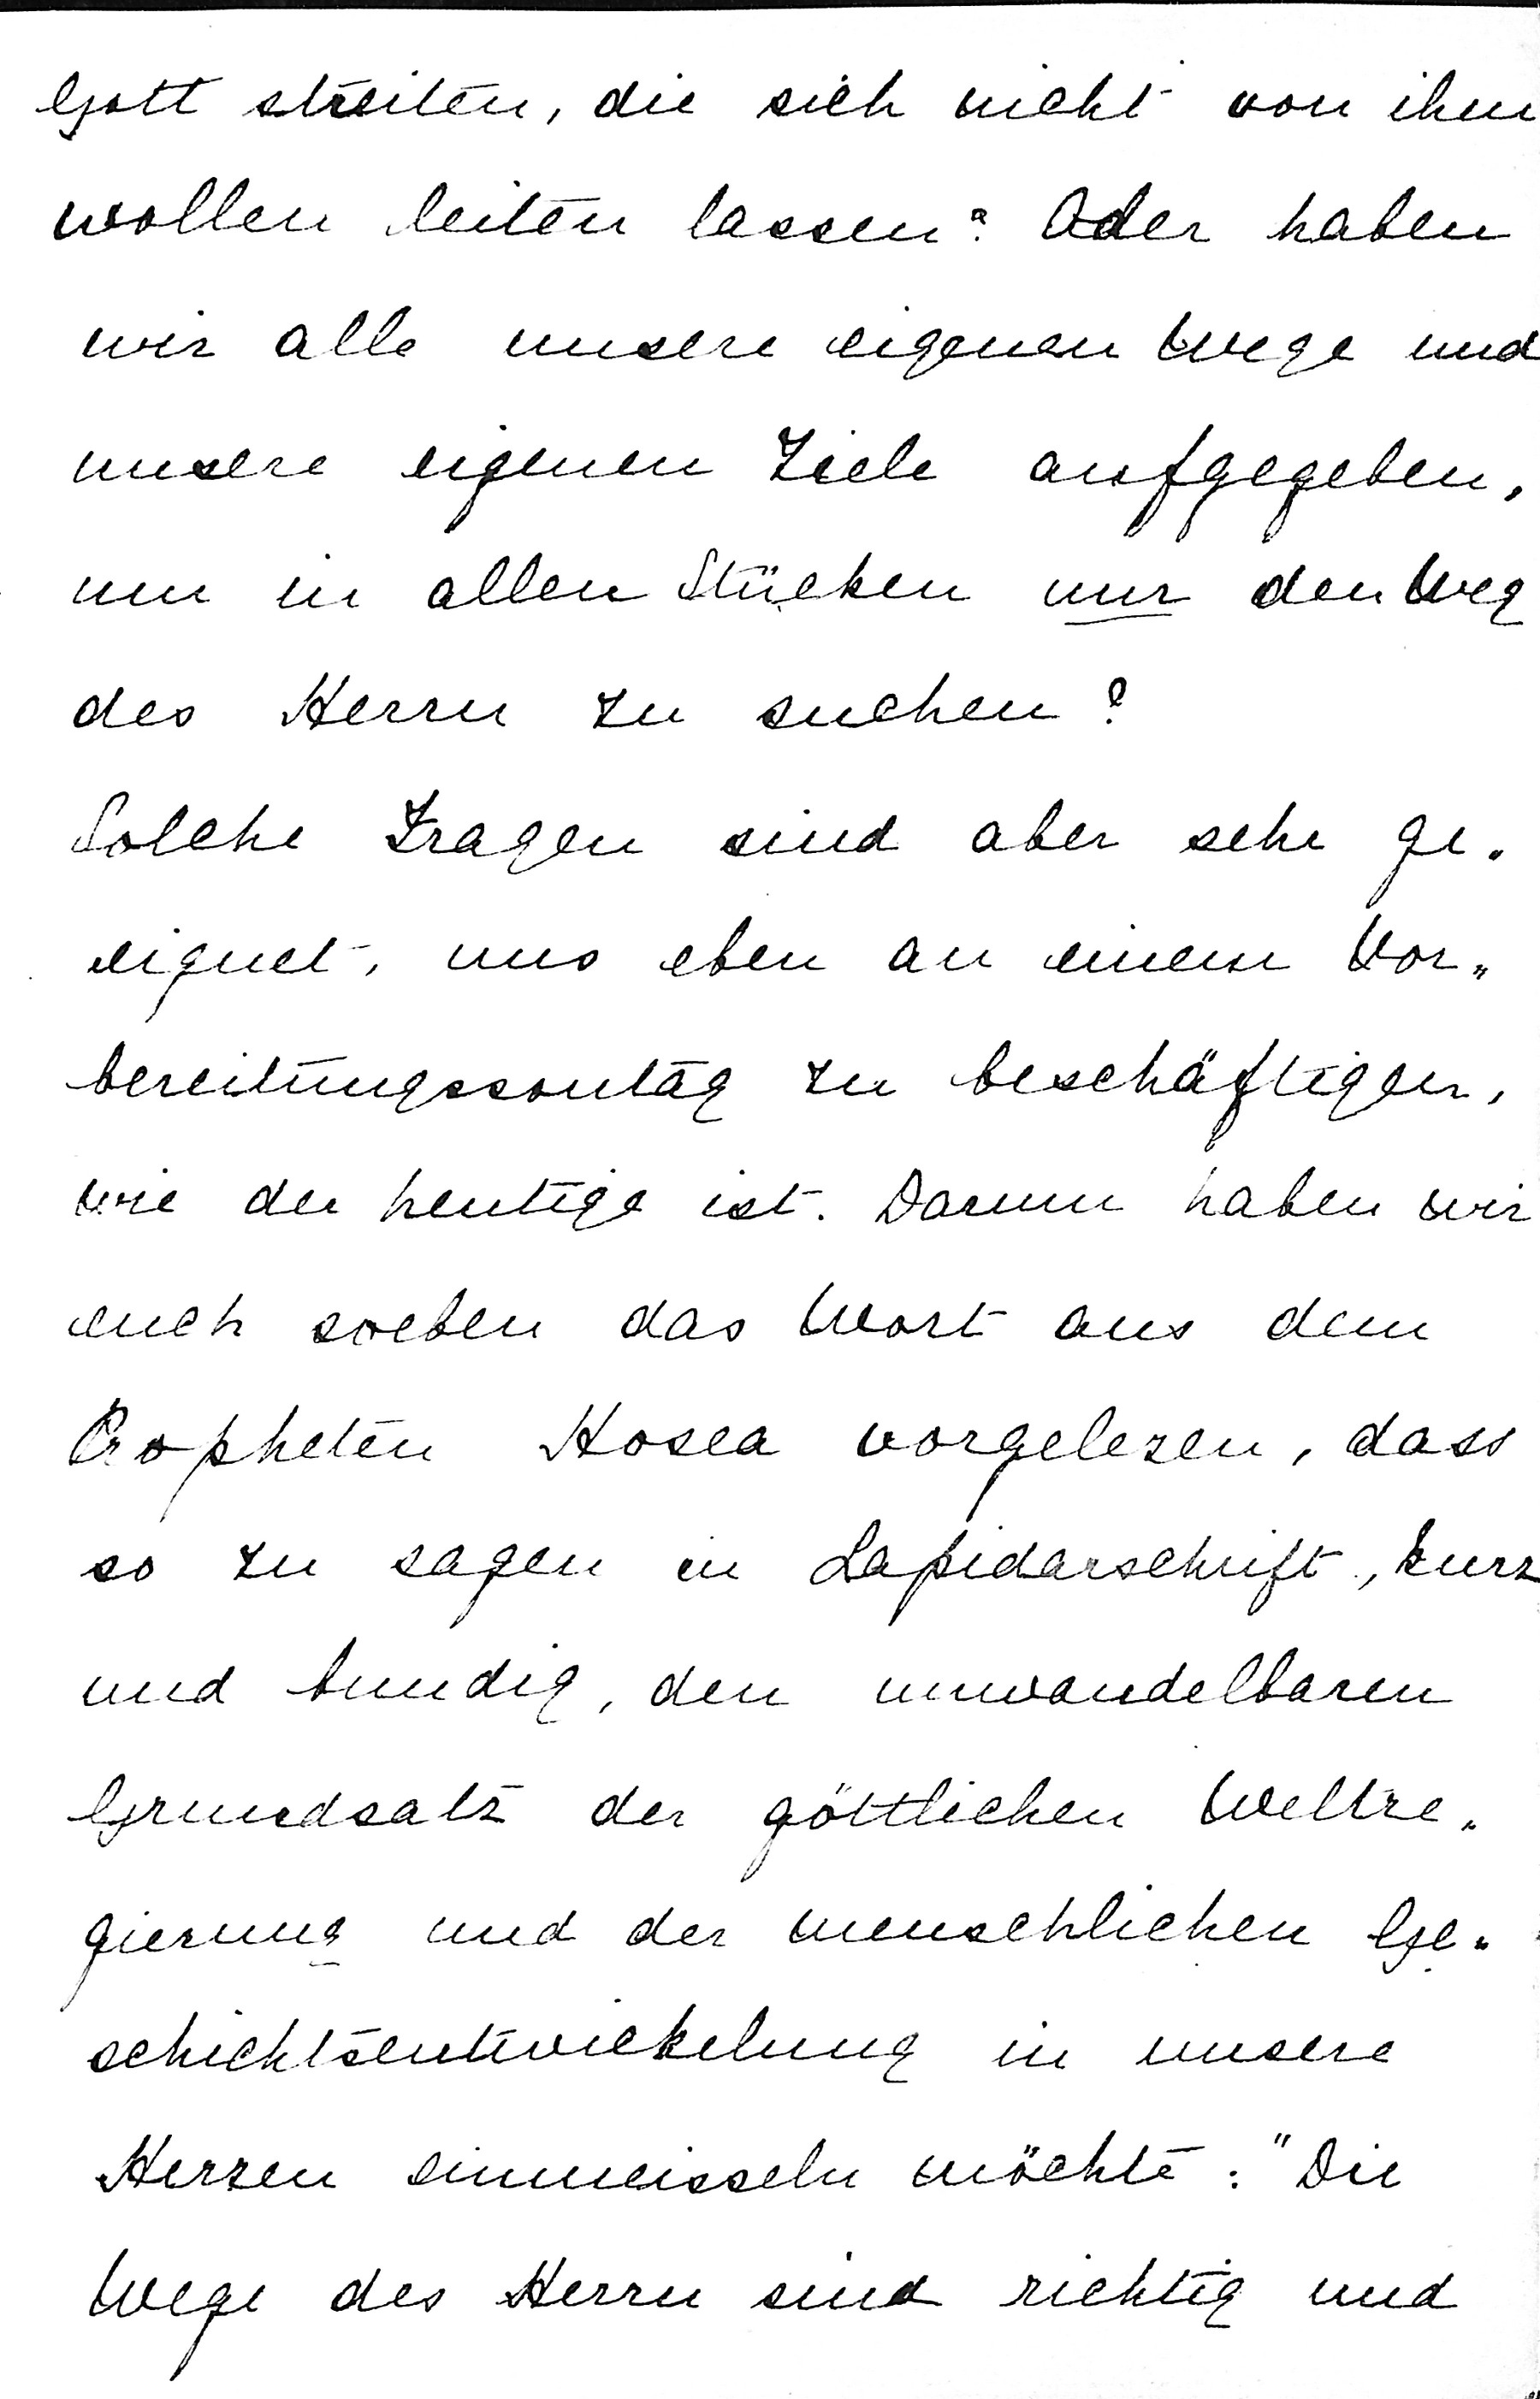 Gott streiten, die sich nicht von ihm
wollen leiten lassen? Oder haben
wir alle unsere eigenen Wege und
unsere eigenen Ziele aufgegeben,
um in allen Stücken nur den Weg
des Herrn zu suchen?
Solche Fragen sind aber sehr ge-
eignet, uns eben an einem Vor-
bereitungssontag zu beschäftigen,
wie der heutige ist. Darum haben wir
euch soeben das Wort aus dem
Propheten Hosea vorgelesen, dass
so zu sagen in Lapidarschrift, kurz
und bundig, den unwandelbaren
Grundsatz der göttlichen Weltre-
gierung und der menschlichen Ge-
schichtsentwickelung in unsere
Herzen einmeisseln möchte: "Die
Wege des Herrn sind richtig und